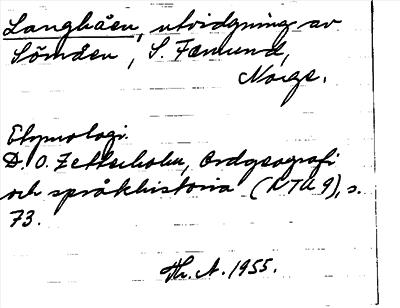 Langhåen, utvidgning av
Sömåen, S. Femund,
Norge.
Etymologi.
D. O. Zetterholm, Ordgeografi
och språkhistoria (NTU 9), s.
73.
Hr. N. 1955.